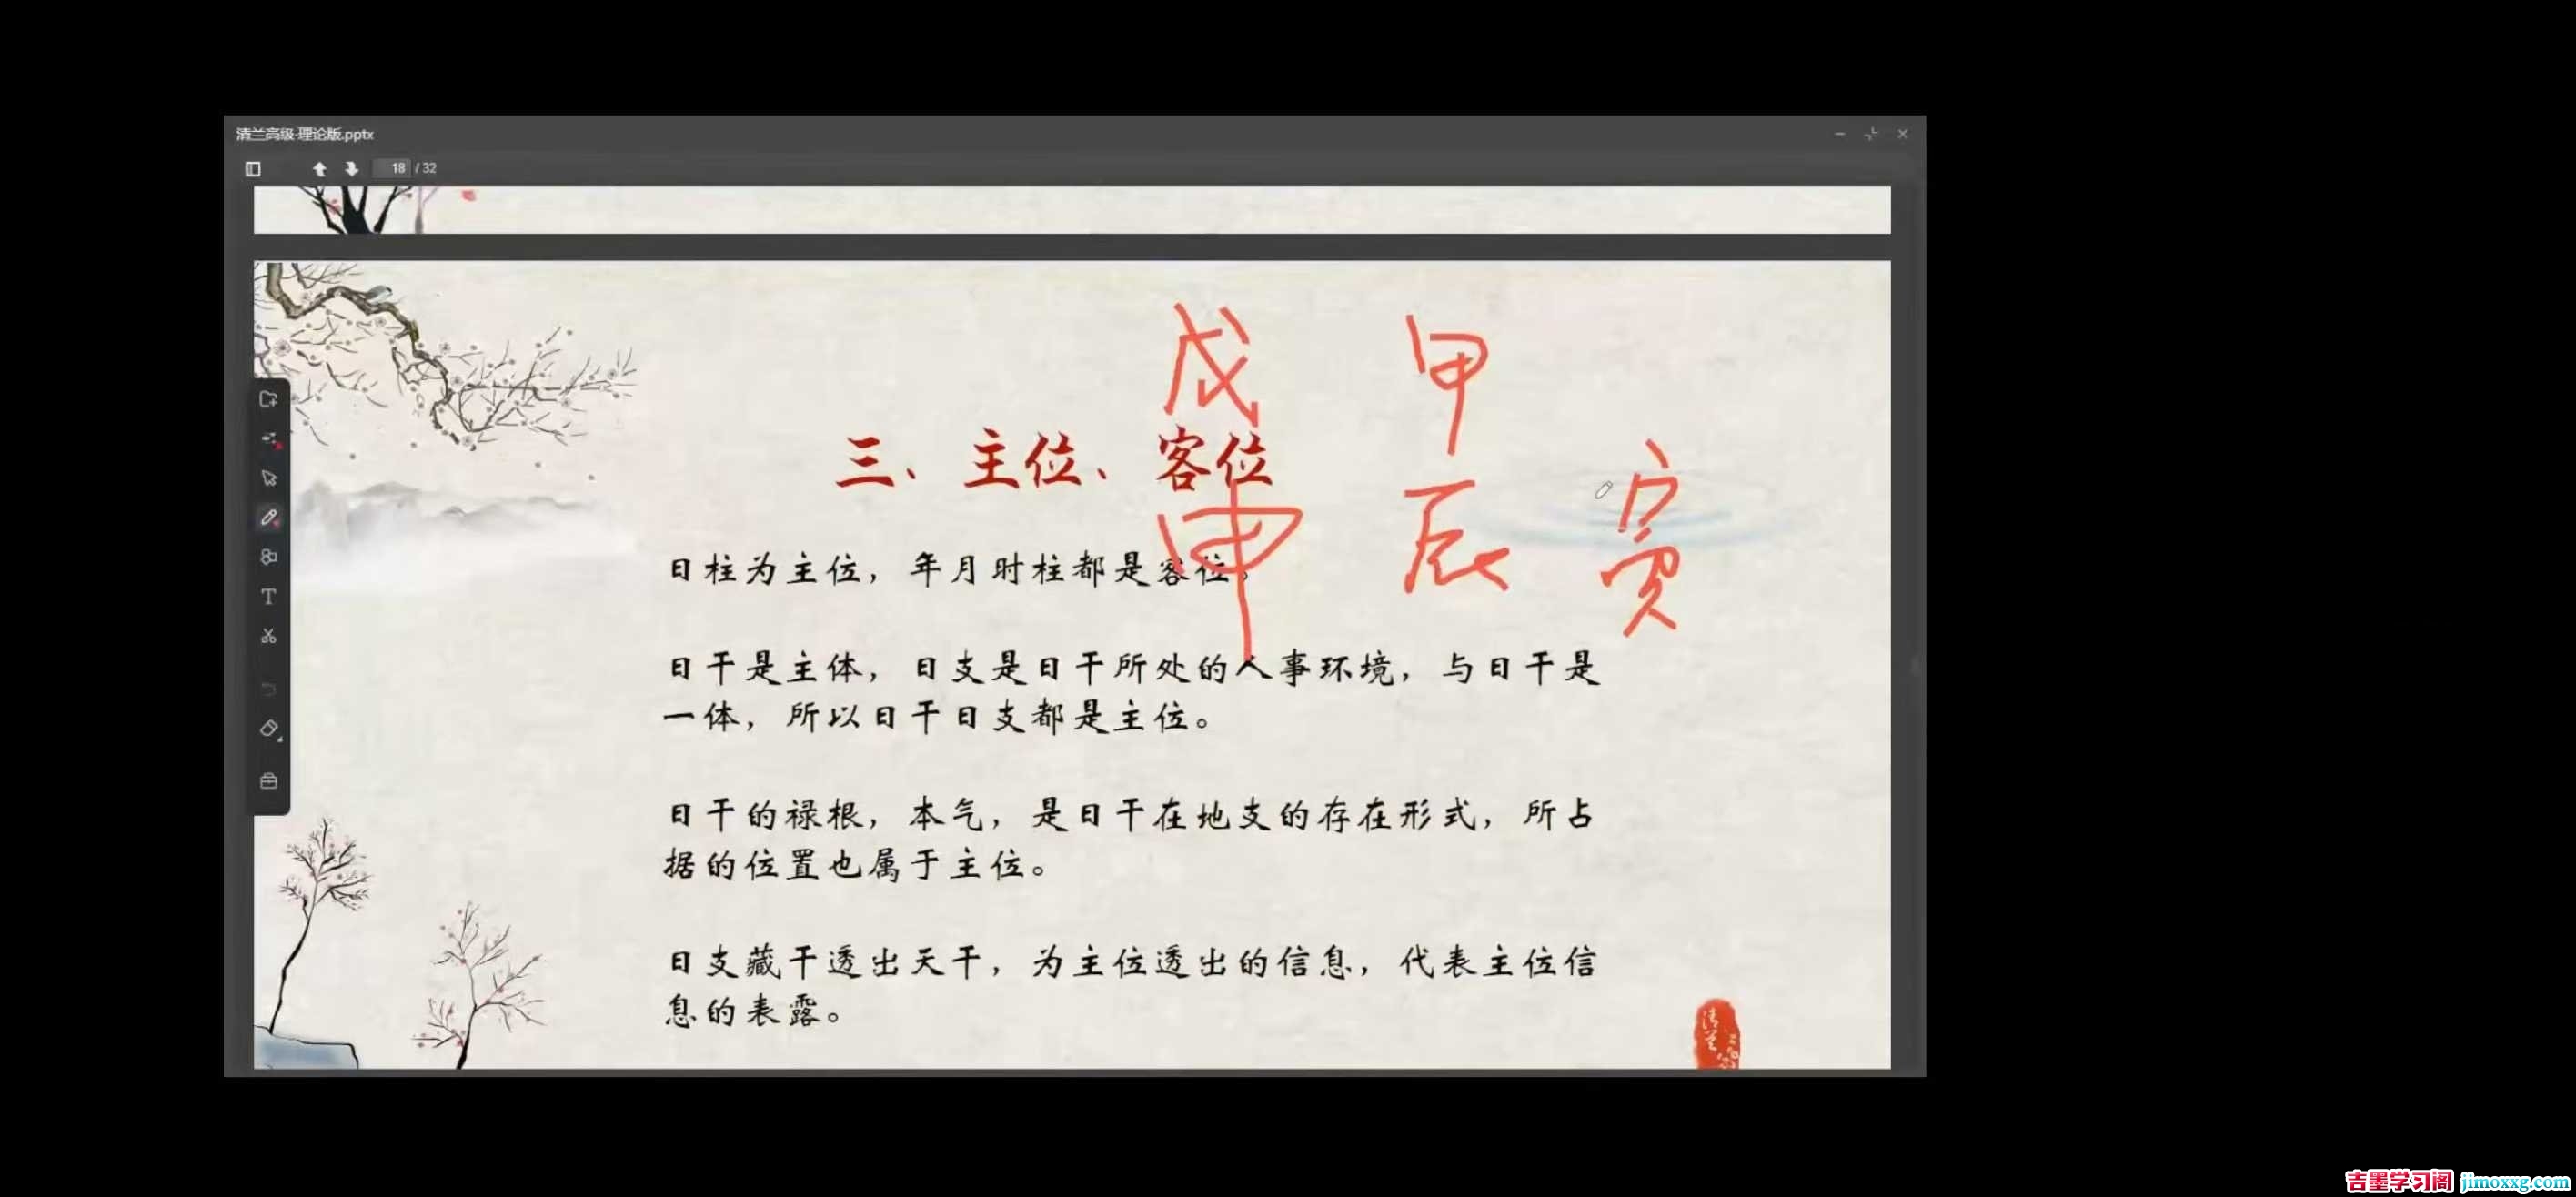 清兰高级-理论版.pptx
18 / 32
戊 甲
三、主位、客位
申 辰 寅
日柱为主位，年月时柱都是客位。
日干是主体，日支是日干所处的人事环境，与日干是
一体，所以日干日支都是主位。
日干的禄根，本气，是日干在地支的存在形式，所占
据的位置也属于主位。
日支藏干透出天干，为主位透出的信息，代表主位信
息的表露。
清兰
吉墨学习阁 jimoxxg.com